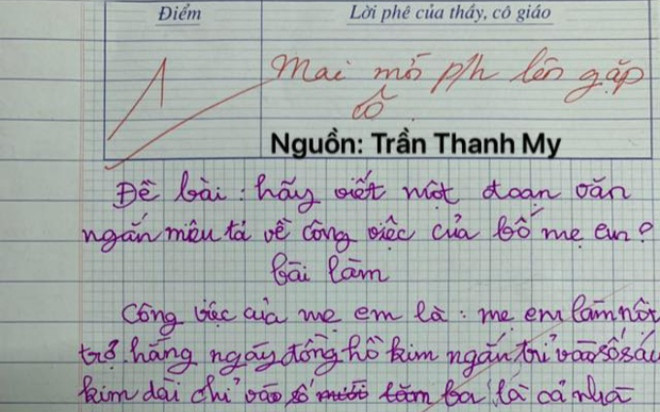 Điểm
Lời phê của thầy, cô giáo
1
Mai mời p/h lên gặp
cô
Nguồn: Trần Thanh My
Đề bài: hãy viết một đoạn văn
ngắn miêu tả về công việc của bố mẹ em?
bài làm
Công việc của mẹ em là: mẹ em làm nội
trợ. hàng ngày đồng hồ kim ngắn trỉ vào số sáu
kim dài chỉ vào số mười lăm ba là cả nhà